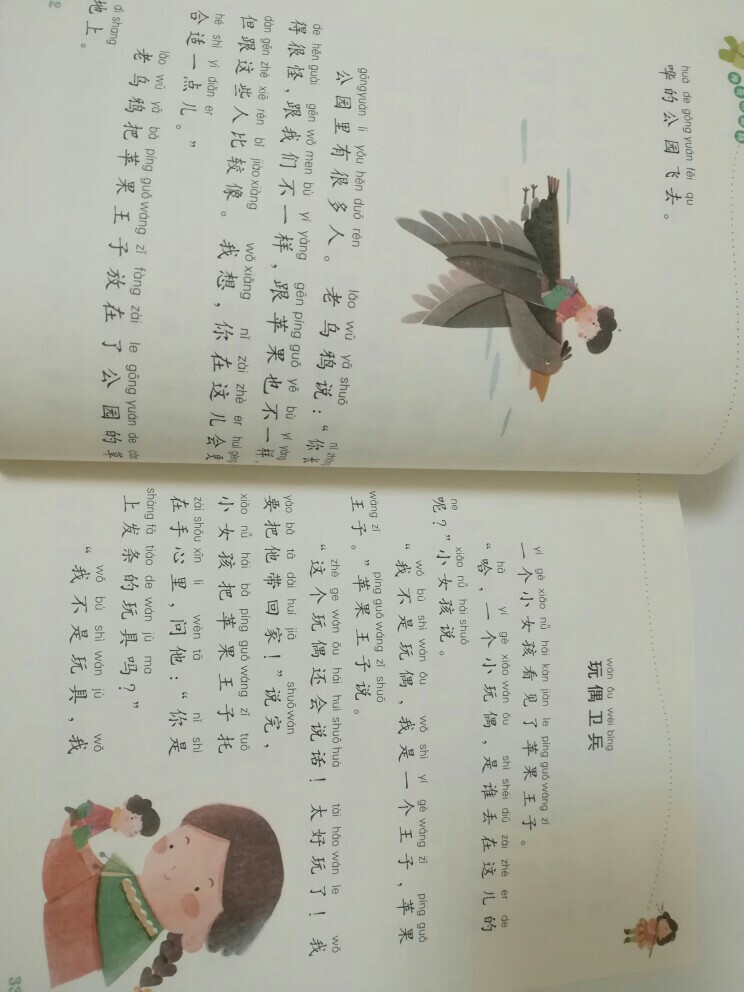 huá de gōng yuán fēi qu
哗的公园飞去。
gōngyuán li yǒu hěn duō rén lǎo wū yā shuō
公园里有很多人。老乌鸦说：“你
de hěn guài gēn wǒ men bù yí yàng gēn píng guǒ yě bù yí yàng
得很怪，跟我们不一样，跟苹果也不一样，
dàn gēn zhè xiē rén bǐ jiào xiàng wǒ xiǎng nǐ zài zhè er huì
但跟这些人比较像。我想，你在这儿会更
hé shì yì diǎn er
合适一点儿。”
lǎo wū yā bǎ píng guǒ wáng zǐ fàng zài le gōng yuán de
老乌鸦把苹果王子放在了公园的草
dì shang
地上。
wán ǒu wèi bīng
玩偶卫兵
yí gè xiǎo nǚ hái kàn jiàn le píng guǒ wáng zǐ
一个小女孩看见了苹果王子。
hā yí gè xiǎo wán ǒu shì shéi diū zài zhè er de
“哈，一个小玩偶，是谁丢在这儿的
ne xiǎo nǚ hái shuō
呢？”小女孩说。
wǒ bú shì wán ǒu wǒ shì yí gè wáng zǐ píng guǒ
“我不是玩偶，我是一个王子，苹果
wáng zǐ píng guǒ wáng zǐ shuō
王子。”苹果王子说。
zhè ge wán ǒu hái huì shuō huà tài hǎo wán le wǒ
“这个玩偶还会说话！太好玩了！我
yào bǎ tā dài huí jiā shuō wán
要把他带回家！”说完，
xiǎo nǚ hái bǎ píng guǒ wáng zǐ tuō
小女孩把苹果王子托
zài shǒu xīn li wèn tā nǐ shì
在手心里，问他：“你是
shàng fā tiáo de wán jù ma
上发条的玩具吗？”
wǒ bú shì wán jù wǒ
“我不是玩具，我
33